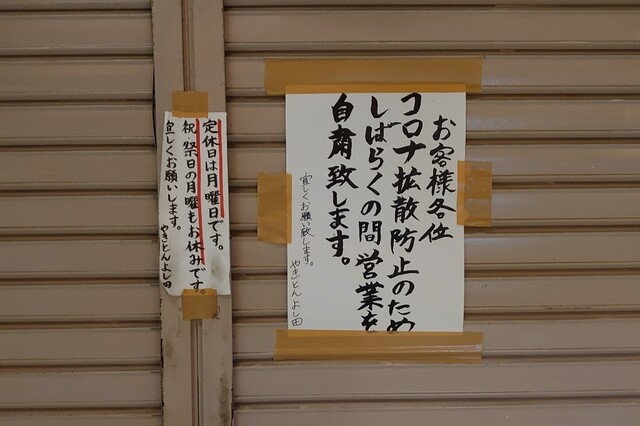 お客様各位
コロナ拡散防止のため
しばらくの間営業を
自粛致します。
宜しくお願い致します。
やきとん よし田
定休日は月曜日です。
祝・祭日の月曜もお休みです。
宜しくお願いします。
やきとんよし田